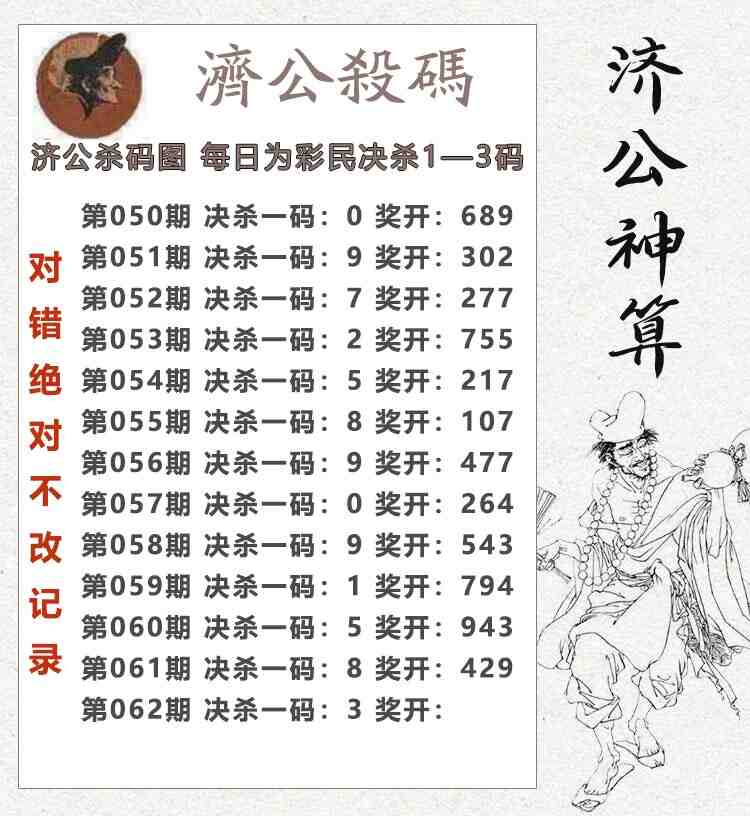 濟公殺碼
济公杀码图 每日为彩民决杀1—3码
第050期 决杀一码：0 奖开：689
第051期 决杀一码：9 奖开：302
第052期 决杀一码：7 奖开：277
第053期 决杀一码：2 奖开：755
第054期 决杀一码：5 奖开：217
第055期 决杀一码：8 奖开：107
第056期 决杀一码：9 奖开：477
第057期 决杀一码：0 奖开：264
第058期 决杀一码：9 奖开：543
第059期 决杀一码：1 奖开：794
第060期 决杀一码：5 奖开：943
第061期 决杀一码：8 奖开：429
第062期 决杀一码：3 奖开：
对错绝对不改记录
济公神算